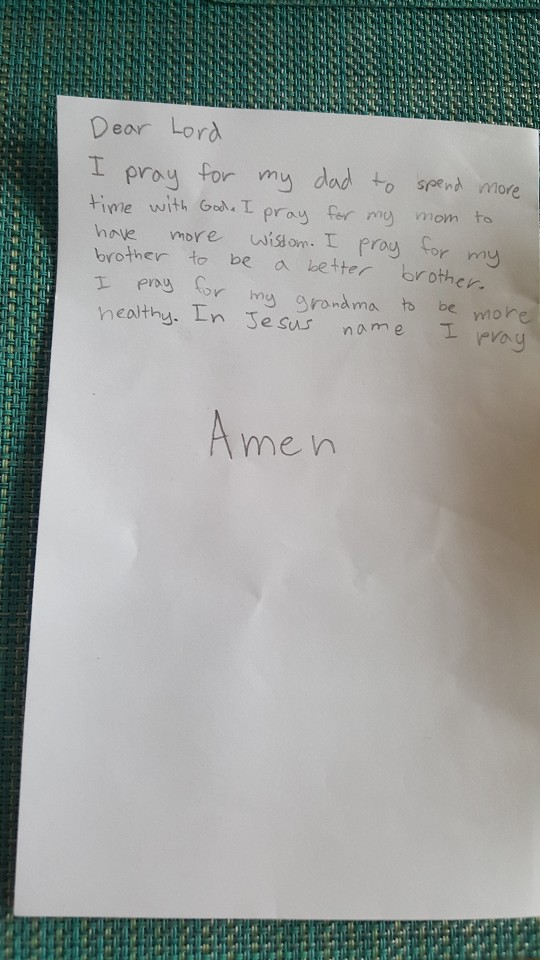 Dear Lord
I pray for my dad to spend more
time with God. I pray for my mom to
have more wisdom. I pray for my
brother to be a better brother.
I pray for my grandma to be more
healthy. In Jesus name I pray
Amen